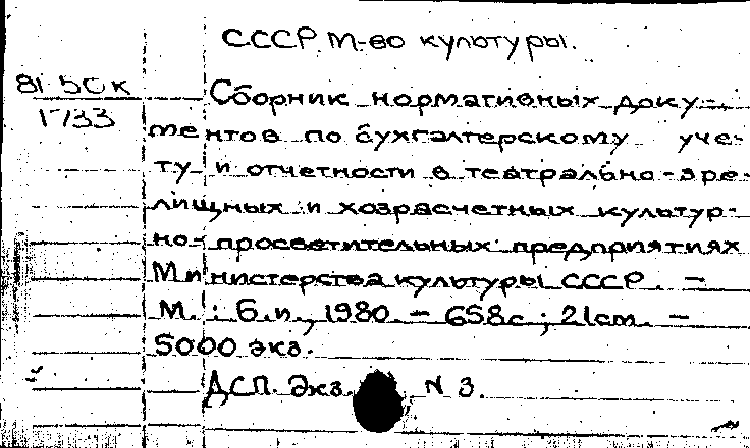 СССР. М-во культуры.
81 50к
1733
Сборник нормативных доку-
ментов по бухгалтерскому уче-
ту и отчетности в театрально-зре-
лищных и хозрасчетных культур-
но-просветительных предприятиях
Министерства культуры СССР. —
М.: Б.и., 1980. — 658с; 21см. —
5000 экз.
ДСП. Экз. N 3.